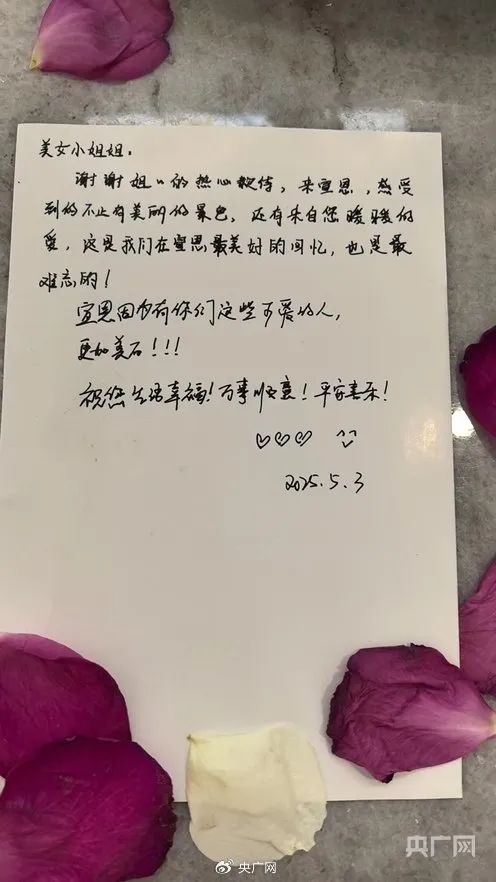 美女小姐姐：
谢谢姐〃的热心款待，来宣恩，感受
到的不止有美丽的景色，还有来自您暖暖的
爱，这是我们在宣恩最美好的回忆，也是最
难忘的！
宣恩因为有你们这些可爱的人，
更加美石！！！
祝您生活幸福！万事顺意！平安喜乐！
♡♡♡ ^^
2025.5.3
央广网
央广网